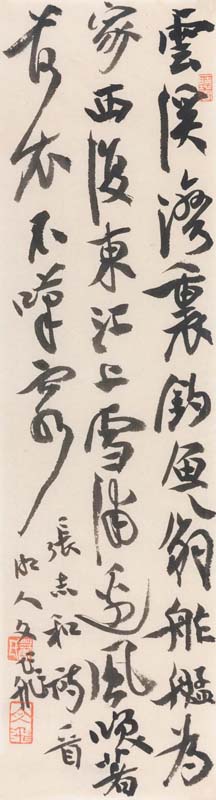 雲溪灣裏釣魚翁舴艋為
家西復東江上雪浦邊風咲著
荷衣不嘆窮
張志和詩